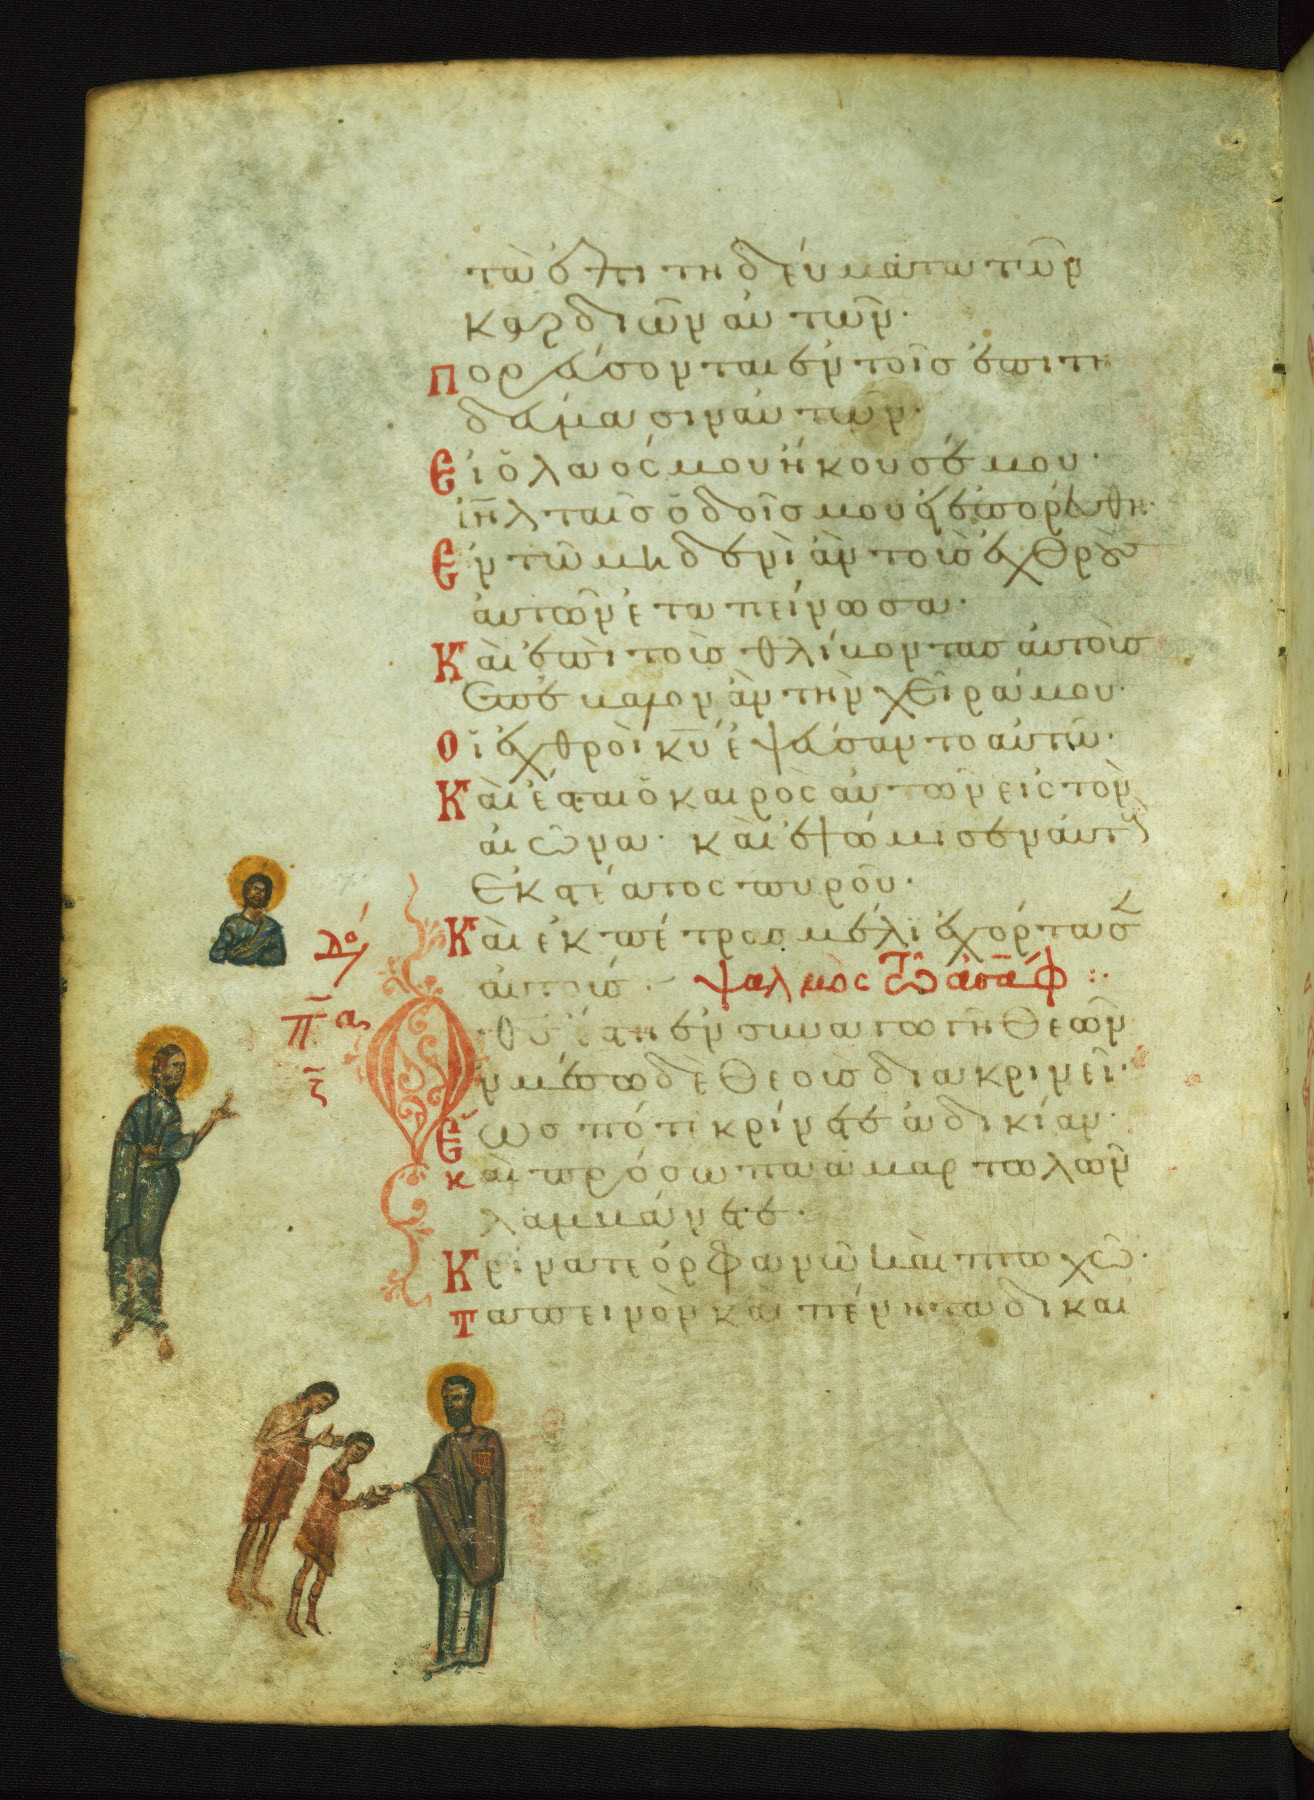 τὰ ἐπιτηδεύματα τῶν
καρδιῶν αὐτῶν·
Πορεύσονται ἐν τοῖς ἐπιτη
δεύμασιν αὐτῶν·
Εἰ ὁ λαός μου ἤκουσέ μου·
ἰη̅λ ταῖς ὁδοῖς μου εἰ ἐπορεύθη·
Ἐν τῶ μηδενὶ ἂν τοὺς ἐχθροὺς
αὐτῶν ἐταπείνωσα·
Καὶ ἐπὶ τοὺς θλίβοντας αὐτοὺς
ἐπέβαλον ἂν τὴν χεῖρά μου·
Οἱ ἐχθροὶ κ̅υ̅ ἐψεύσαντο αὐτῶ·
Καὶ ἔσται ὁ καιρὸς αὐτῶν εἰς τὸν
αἰῶνα· καὶ ἐψώμισεν αὐτοὺς
ἐκ στέατος πυροῦ·
Καὶ ἐκ πέτρας μέλι ἐχόρτασεν
αὐτούς· ψαλμὸς τῶ ἀσάφ :·
Δό
π̅α
Ὁ θ̅ς̅ ἔστη ἐν συναγωγῆ θεῶν
ἐν μέσω δὲ θεοὺς διακρινεῖ·
Ἕως πότε κρίνετε ἀδικίαν·
καὶ πρόσωπα ἁμαρτωλῶν
λαμβάνετε·
Κρίνατε ὀρφανῶ καὶ πτωχῶ·
Ταπεινὸν καὶ πένητα δικαι